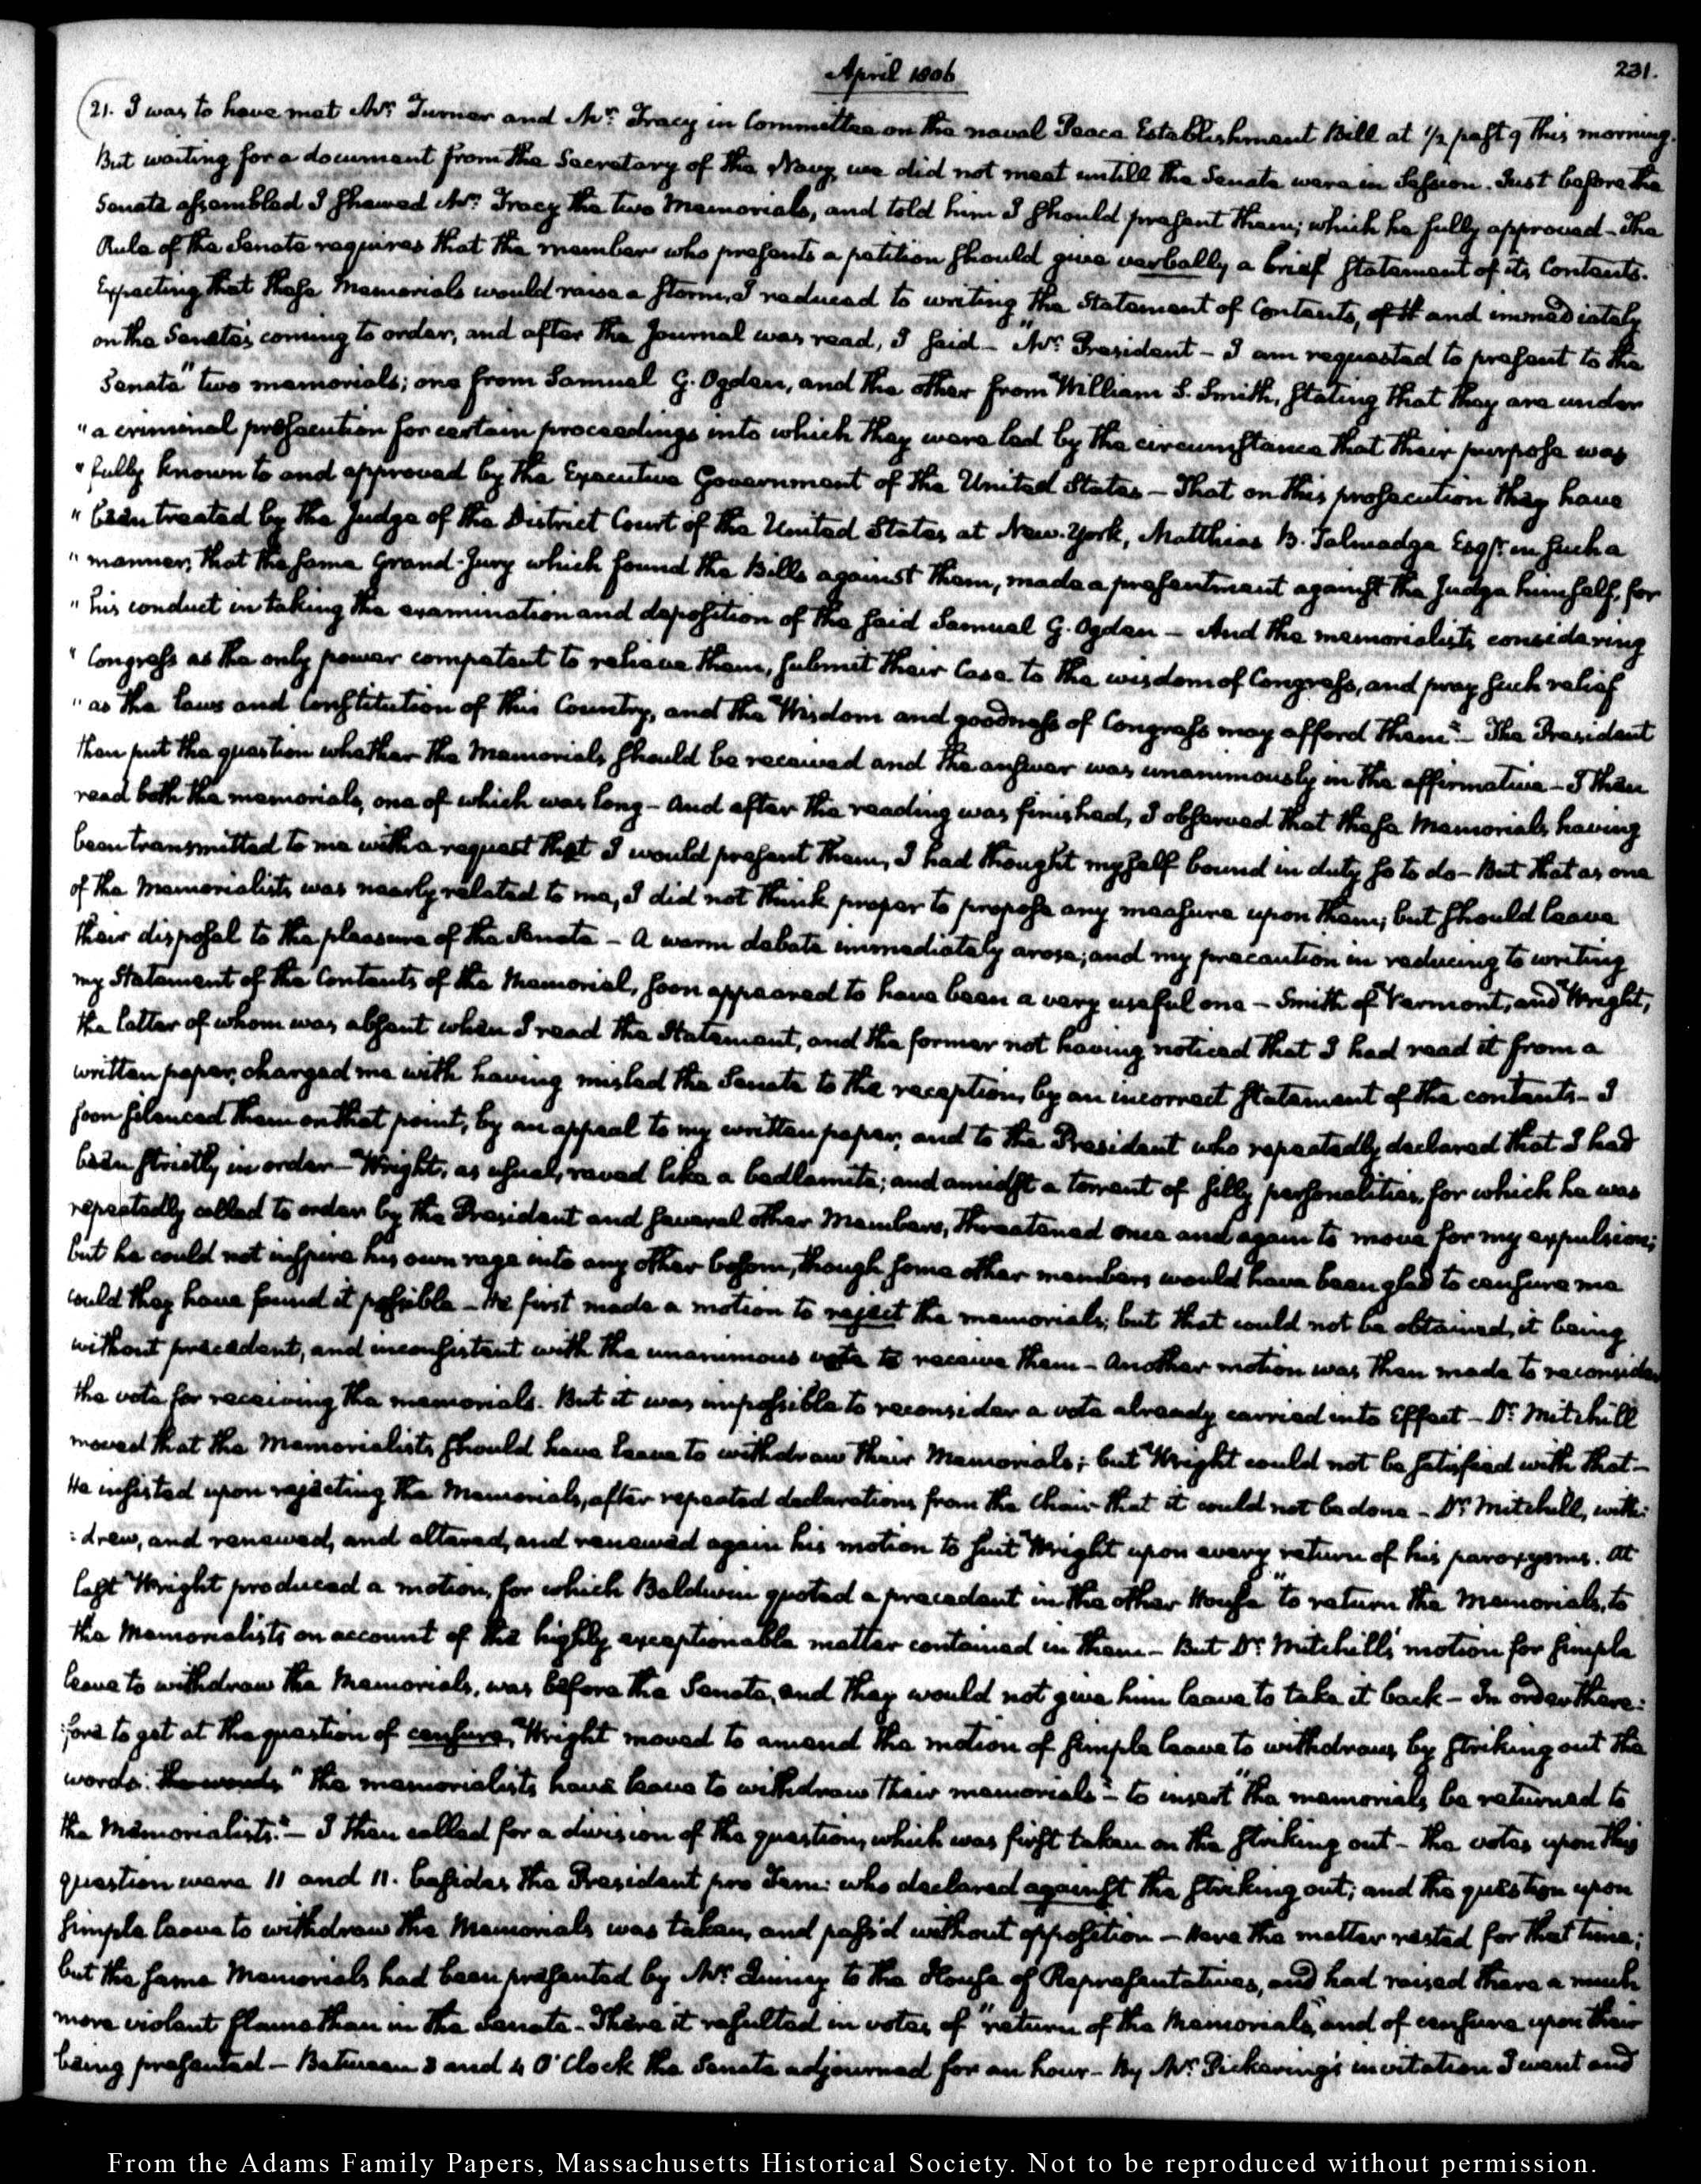 April 1806
231.
21. I was to have met Mr. Turner and Mr. Tracy in Committee on the naval Peace Establishment Bill at ½ past 9 this morning.
But waiting for a document from the Secretary of the Navy, we did not meet untill the Senate were in Session. Just before the
Senate assembled I shewed Mr. Tracy the two Memorials, and told him I should present them; which he fully approved - The
Rule of the Senate requires that the member who presents a petition should give verbally a brief statement of its Contents.
Expecting that these Memorials would raise a storm, I reduced to writing the Statement of Contents, of it and immediately
on the Senate's coming to order, and after the Journal was read, I said - "Mr. President - I am requested to present to the
Senate" two memorials; one from Samuel G. Ogden, and the other from William S. Smith, stating that they are under
"a criminal prosecution for certain proceedings into which they were led by the circumstance that their purpose was
"fully known to and approved by the Executive Government of the United States - That on this prosecution they have
"been treated by the Judge of the District Court of the United States at New-York, Matthias B. Talmadge Esqr. in such a
"manner, that the same Grand-Jury which found the Bills against them, made a presentment against the Judge himself, for
"his conduct in taking the examination and deposition of the said Samuel G. Ogden - And the memorialists considering
"Congress as the only power competent to relieve them, submit their Case to the wisdom of Congress, and pray such relief
"as the laws and Constitution of this Country, and the Wisdom and goodness of Congress may afford them" - The President
then put the question whether the Memorials should be received and the answer was unanimously in the affirmative - I then
read both the memorials, one of which was long - And after the reading was finished, I observed that these Memorials having
been transmitted to me with a request that I would present them, I had thought myself bound in duty so to do - But that as one
of the Memorialists was nearly related to me, I did not think proper to propose any measure upon them; but should leave
their disposal to the pleasure of the Senate - A warm debate immediately arose; and my precaution in reducing to writing
my Statement of the Contents of the Memorial, soon appeared to have been a very useful one - Smith of Vermont, and Wright,
the latter of whom was absent when I read the Statement, and the former not having noticed that I had read it from a
written paper, charged me with having misled the Senate to the reception, by an incorrect statement of the contents - I
soon silenced them on that point, by an appeal to my written paper, and to the President who repeatedly declared that I had
been strictly in order - Wright, as usual, raved like a bedlamite; and amidst a torrent of silly personalities, for which he was
repeatedly called to order by the President and several other Members, threatened once and again to move for my expulsion;
but he could not inspire his own rage into any other bosom, though some other members would have been glad to censure me
could they have found it possible - He first made a motion to reject the memorials; but that could not be obtained, it being
without precedent, and inconsistent with the unanimous vote to receive them - Another motion was then made to reconsider
the vote for receiving the memorials. But it was impossible to reconsider a vote already carried into Effect - Dr. Mitchill
moved that the Memorialists should have leave to withdraw their Memorials; but Wright could not be satisfied with that -
He insisted upon rejecting the Memorials, after repeated declarations from the Chair that it could not be done - Dr. Mitchill, with:
:drew, and renewed, and altered, and renewed again his motion to suit Wright upon every return of his paroxysms. At
last Wright produced a motion, for which Baldwin quoted a precedent in the other House "to return the Memorials, to
the Memorialists on account of the highly exceptionable matter contained in them - But Dr. Mitchill's motion for simple
leave to withdraw the Memorials, was before the Senate, and they would not give him leave to take it back - In order there:
:fore to get at the question of censure, Wright moved to amend the motion of simple leave to withdraw, by striking out the
words: the words "the memorialists have leave to withdraw their memorials" - to insert "the memorials be returned to
the Memorialists." - I then called for a division of the question, which was first taken on the striking out - the votes upon this
question were 11 and 11. besides the President pro Tem: who declared against the striking out; and the question upon
simple leave to withdraw the Memorials was taken, and pass'd without opposition - Here the matter rested for that time;
but the same Memorials had been presented by Mr. Quincy to the House of Representatives, and had raised there a much
more violent flame than in the Senate - There it resulted in votes of "return of the Memorials", and of censure upon their
being presented - Between 3 and 4 O'Clock the Senate adjourned for an hour - By Mr. Pickering's invitation I went and
From the Adams Family Papers, Massachusetts Historical Society. Not to be reproduced without permission.